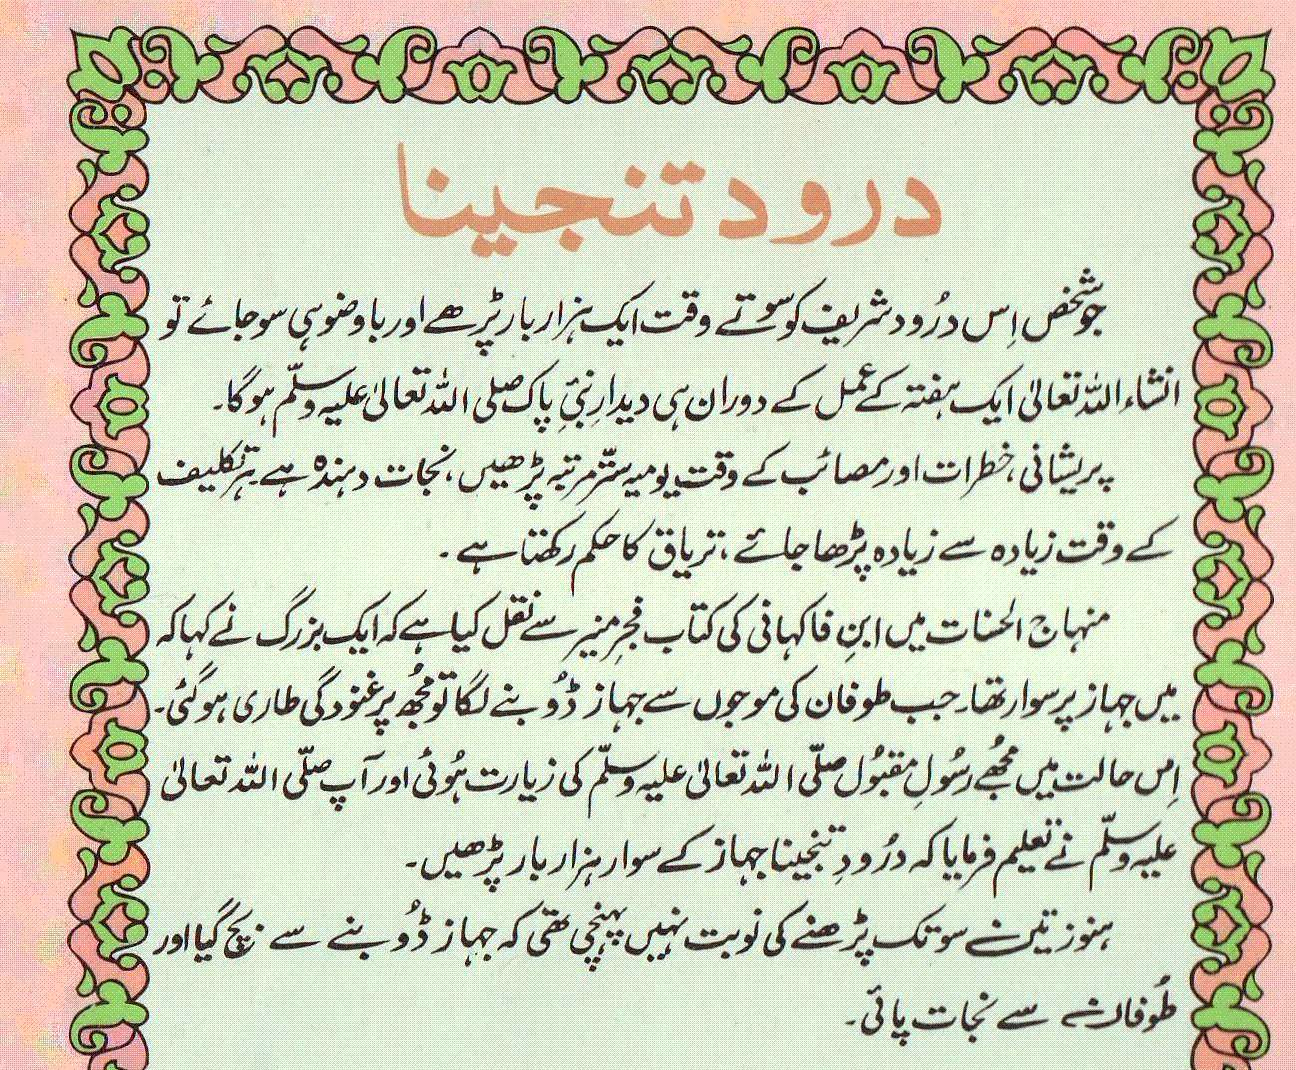 درود تنجینا
جو شخص اِس دُرود شریف کو سوتے وقت ایک ہزار بار پڑھے اور باوضو ہی سو جائے تو
انشاء اللہ تعالیٰ ایک ہفتہ کے عمل کے دوران ہی دیدارِ نبیِ پاک صلی اللہ تعالیٰ علیہ وسلّم ہوگا۔
پریشانی، خطرات اور مصائب کے وقت یومیہ ستّر مرتبہ پڑھیں، نجات دہندہ ہے ہر تکلیف
کے وقت زیادہ سے زیادہ پڑھا جائے، تریاق کا حکم رکھتا ہے۔
منہاج الحسنات میں ابنِ فاکہانی کی کتاب فجرِ منیر سے نقل کیا ہے کہ ایک بزرگ نے کہا کہ
میں جہاز پر سوار تھا۔ جب طوفان کی موجوں سے جہاز ڈُوبنے لگا تو مُجھ پر غنودگی طاری ہوگئی۔
اِس حالت میں مُجھے رسُولِ مقبُول صلّی اللہ تعالیٰ علیہ وسلّم کی زیارت ہُوئی اور آپ صلّی اللہ تعالیٰ
علیہ وسلّم نے تعلیم فرمایا کہ دُرُودِ تنجینا جہاز کے سوار ہزار بار پڑھیں۔
ہنوز تین سو تک پڑھنے کی نوبت نہیں پہنچی تھی کہ جہاز ڈُوبنے سے بچ گیا اور
طُوفان سے نجات پائی۔